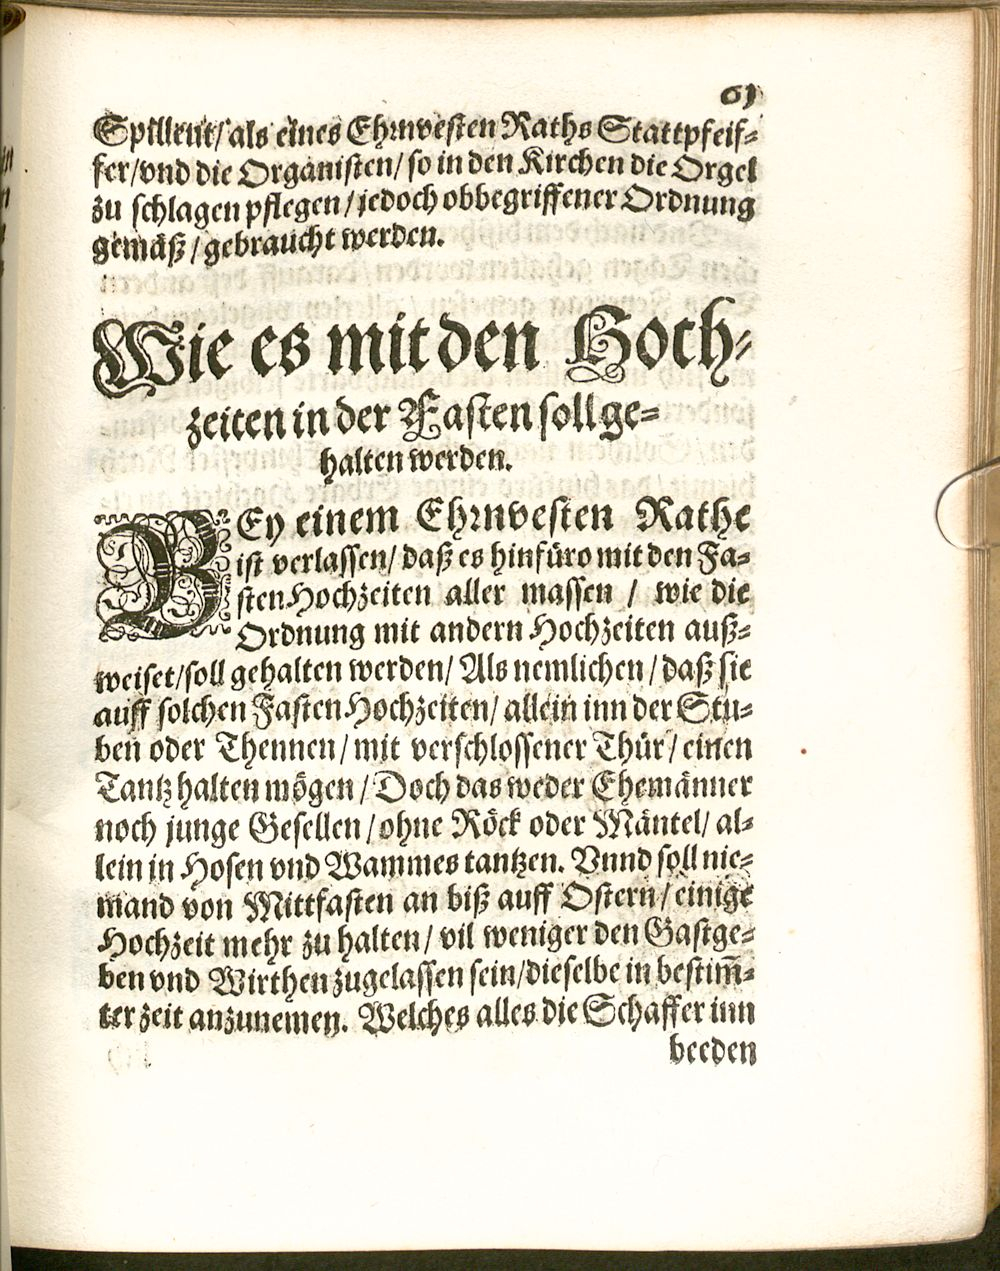 61
Spilleut/ als eines Ehrnvesten Raths Stattpfeif-
fer/ vnd die Organisten/ so in den Kirchen die Orgel
zu schlagen pflegen/ jedoch obbegriffener Ordnung
gemäß/ gebraucht werden.
Wie es mit den Hoch-
zeiten in der Fasten soll ge-
halten werden.
BEy einem Ehrnvesten Rathe
ist verlassen/ daß es hinfüro mit den Fa-
sten Hochzeiten aller massen / wie die
Ordnung mit andern Hochzeiten auß-
weiset/ soll gehalten werden/ Als nemlichen/ daß sie
auff solchen Fasten Hochzeiten/ allein inn der Stu-
ben oder Thennen/ mit verschlossener Thür/ einen
Tantz halten mögen/ Doch das weder Ehemänner
noch junge Gesellen/ ohne Röck oder Mäntel/ al-
lein in Hosen vnd Wammes tantzen. Vnnd soll nie-
mand von Mittfasten an biß auff Ostern/ einige
Hochzeit mehr zu halten/ vil weniger den Gastge-
ben vnd Wirthen zugelassen sein/ dieselbe in bestim̃-
ter zeit anzunemen. Welches alles die Schaffer inn
beeden